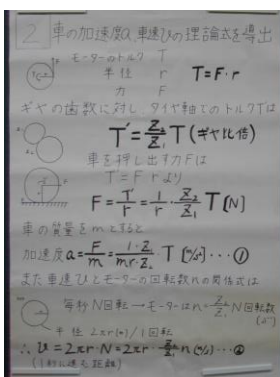 2 車の加速度a,車速υの理論式を導出
モーターのトルク T
半径 r
力 F
T=F・r
ギヤの歯数に対し、タイヤ軸でのトルクT'は
T'=Z₂/Z₁ T (ギヤ比倍)
車を押し出す力Fは
T'=F・rより
F=T'/r=1/r・Z₂/Z₁ T [N]
車の質量をmとすると
加速度a=F/m=1・Z₂/mr・Z₁ T [m/s²]…①
また車速υとモーターの回転数nの関係式は
毎秒N回転→モーターはn=Z₂/Z₁N回転数
半径 2πr(m)/1回転
∴υ=2πr・N=2πr・Z₁/Z₂n (m/s)…②
(1秒に進む距離)